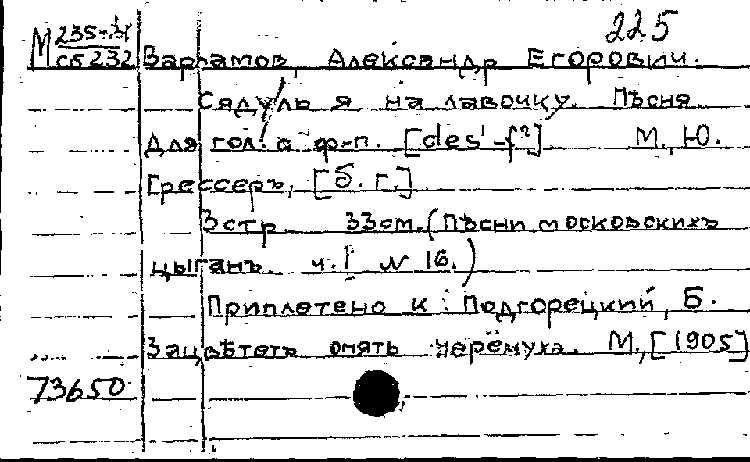 225
М 235-34
сб 232 Варламов, Александр Егорович.
Сяду ль я на лавочку. Пѣсня
для гол. с ф-п. [des¹-f²] М., Ю.
Грессеръ, [б. г.]
3 стр 33 см. (Пѣсни московскихъ
цыганъ ч. I № 16.)
Приплетено к: Подгорецкий, Б.
Зацвѣтетъ опять черёмуха. М., [1905]
73650